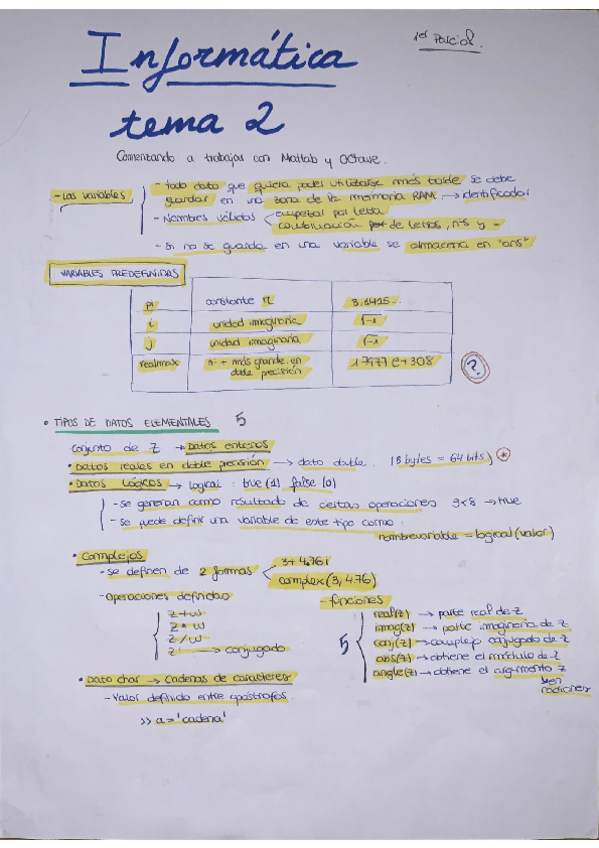 1er Parcial.
Informática
tema 2
Comenzando a trabajar con Matlab y Octave.
- Las variables
- todo dato que quiera poder utilizarse más tarde se debe
guardar en una zona de la memoria RAM → identificador
- Nombres válidos
empezar por letra
combinación de letras, nos y _
- Si no se guarda en una variable se almacena en "ans"
VARIABLES PREDEFINIDAS
pi constante π 3,1415...
i unidad imaginaria √-1
j unidad imaginaria √-1
realmax nº + más grande en doble precisión 1,7977 e+308 ?
• TIPOS DE DATOS ELEMENTALES 5
Conjunto de Z → Datos enteros
• Datos reales en doble precisión → dato double. (8 bytes = 64 bits) *
• Datos Lógicos → logical : true (1) false (0)
- se generan como resultado de ciertas operaciones 9>8 → true
- se puede definir una variable de este tipo como:
nombrevariable = logical (valor)
• Complejos
- se definen de 2 formas
3+4.76i
complex (3, 4.76)
- Operaciones definidas
z + w
z * w
z / w
z' → conjugado
- funciones
5
real(z) → parte real de z
imag(z) → parte imaginaria de z
conj(z) → complejo conjugado de z
abs(z) → obtiene el módulo de z
angle(z) → obtiene el argumento z
en radianes
• Dato char → Cadenas de caracteres
- Valor definido entre apóstrofos.
>> a = 'cadena'